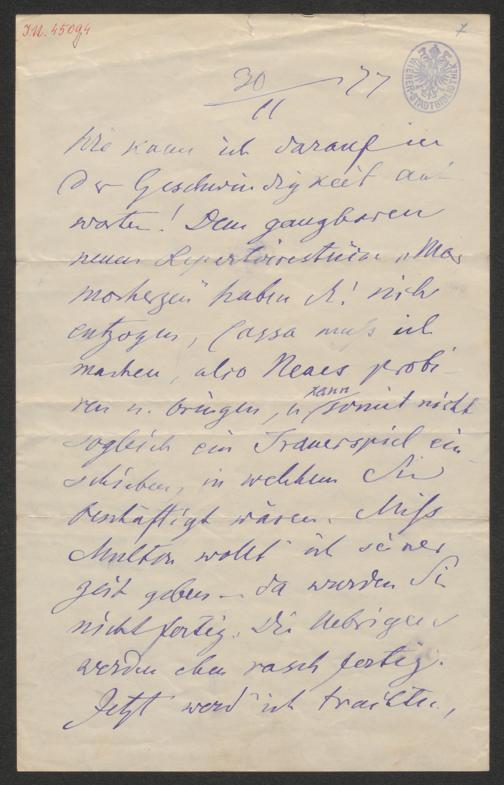 I.N. 45094
7
30/11 77
WIENER STADTBIBLIOTHEK
Wie kann ich darauf in
der Geschwindigkeit ant
worten! Dem gangbaren
neuen Repertoirestück „Mar
morherzen" haben S! sich
entzogen, Cassa muß ich
machen, also Neues probi
ren u. bringen, u kann somit nicht
sogleich ein Trauerspiel ein
schieben, in welchem Sie
beschäftigt wären. Miss
Multon wollt ich seiner
zeit geben – da wurden Sie
nicht fertig. Die Uebrigen
werden eben rasch fertig.
Jetzt werd' ich trachten,